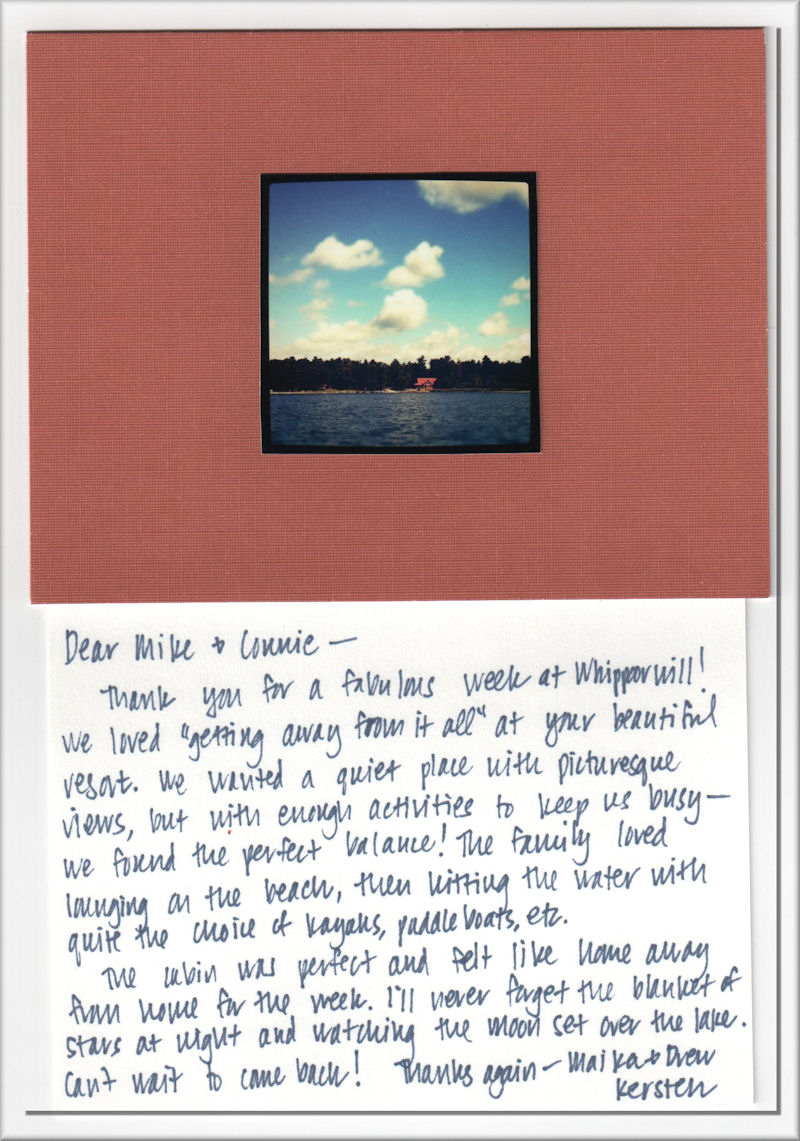 Dear Mike + Connie —
Thank you for a fabulous week at Whipporwill!
We loved "getting away from it all" at your beautiful
resort. We wanted a quiet place with picturesque
views, but with enough activities to keep us busy —
we found the perfect balance! The family loved
lounging on the beach, then hitting the water with
quite the choice of kayaks, paddle boats, etc.
The cabin was perfect and felt like home away
from home for the week. I'll never forget the blanket of
stars at night and watching the moon set over the lake.
Can't wait to come back! Thanks again — Maika + Drew
Kersten